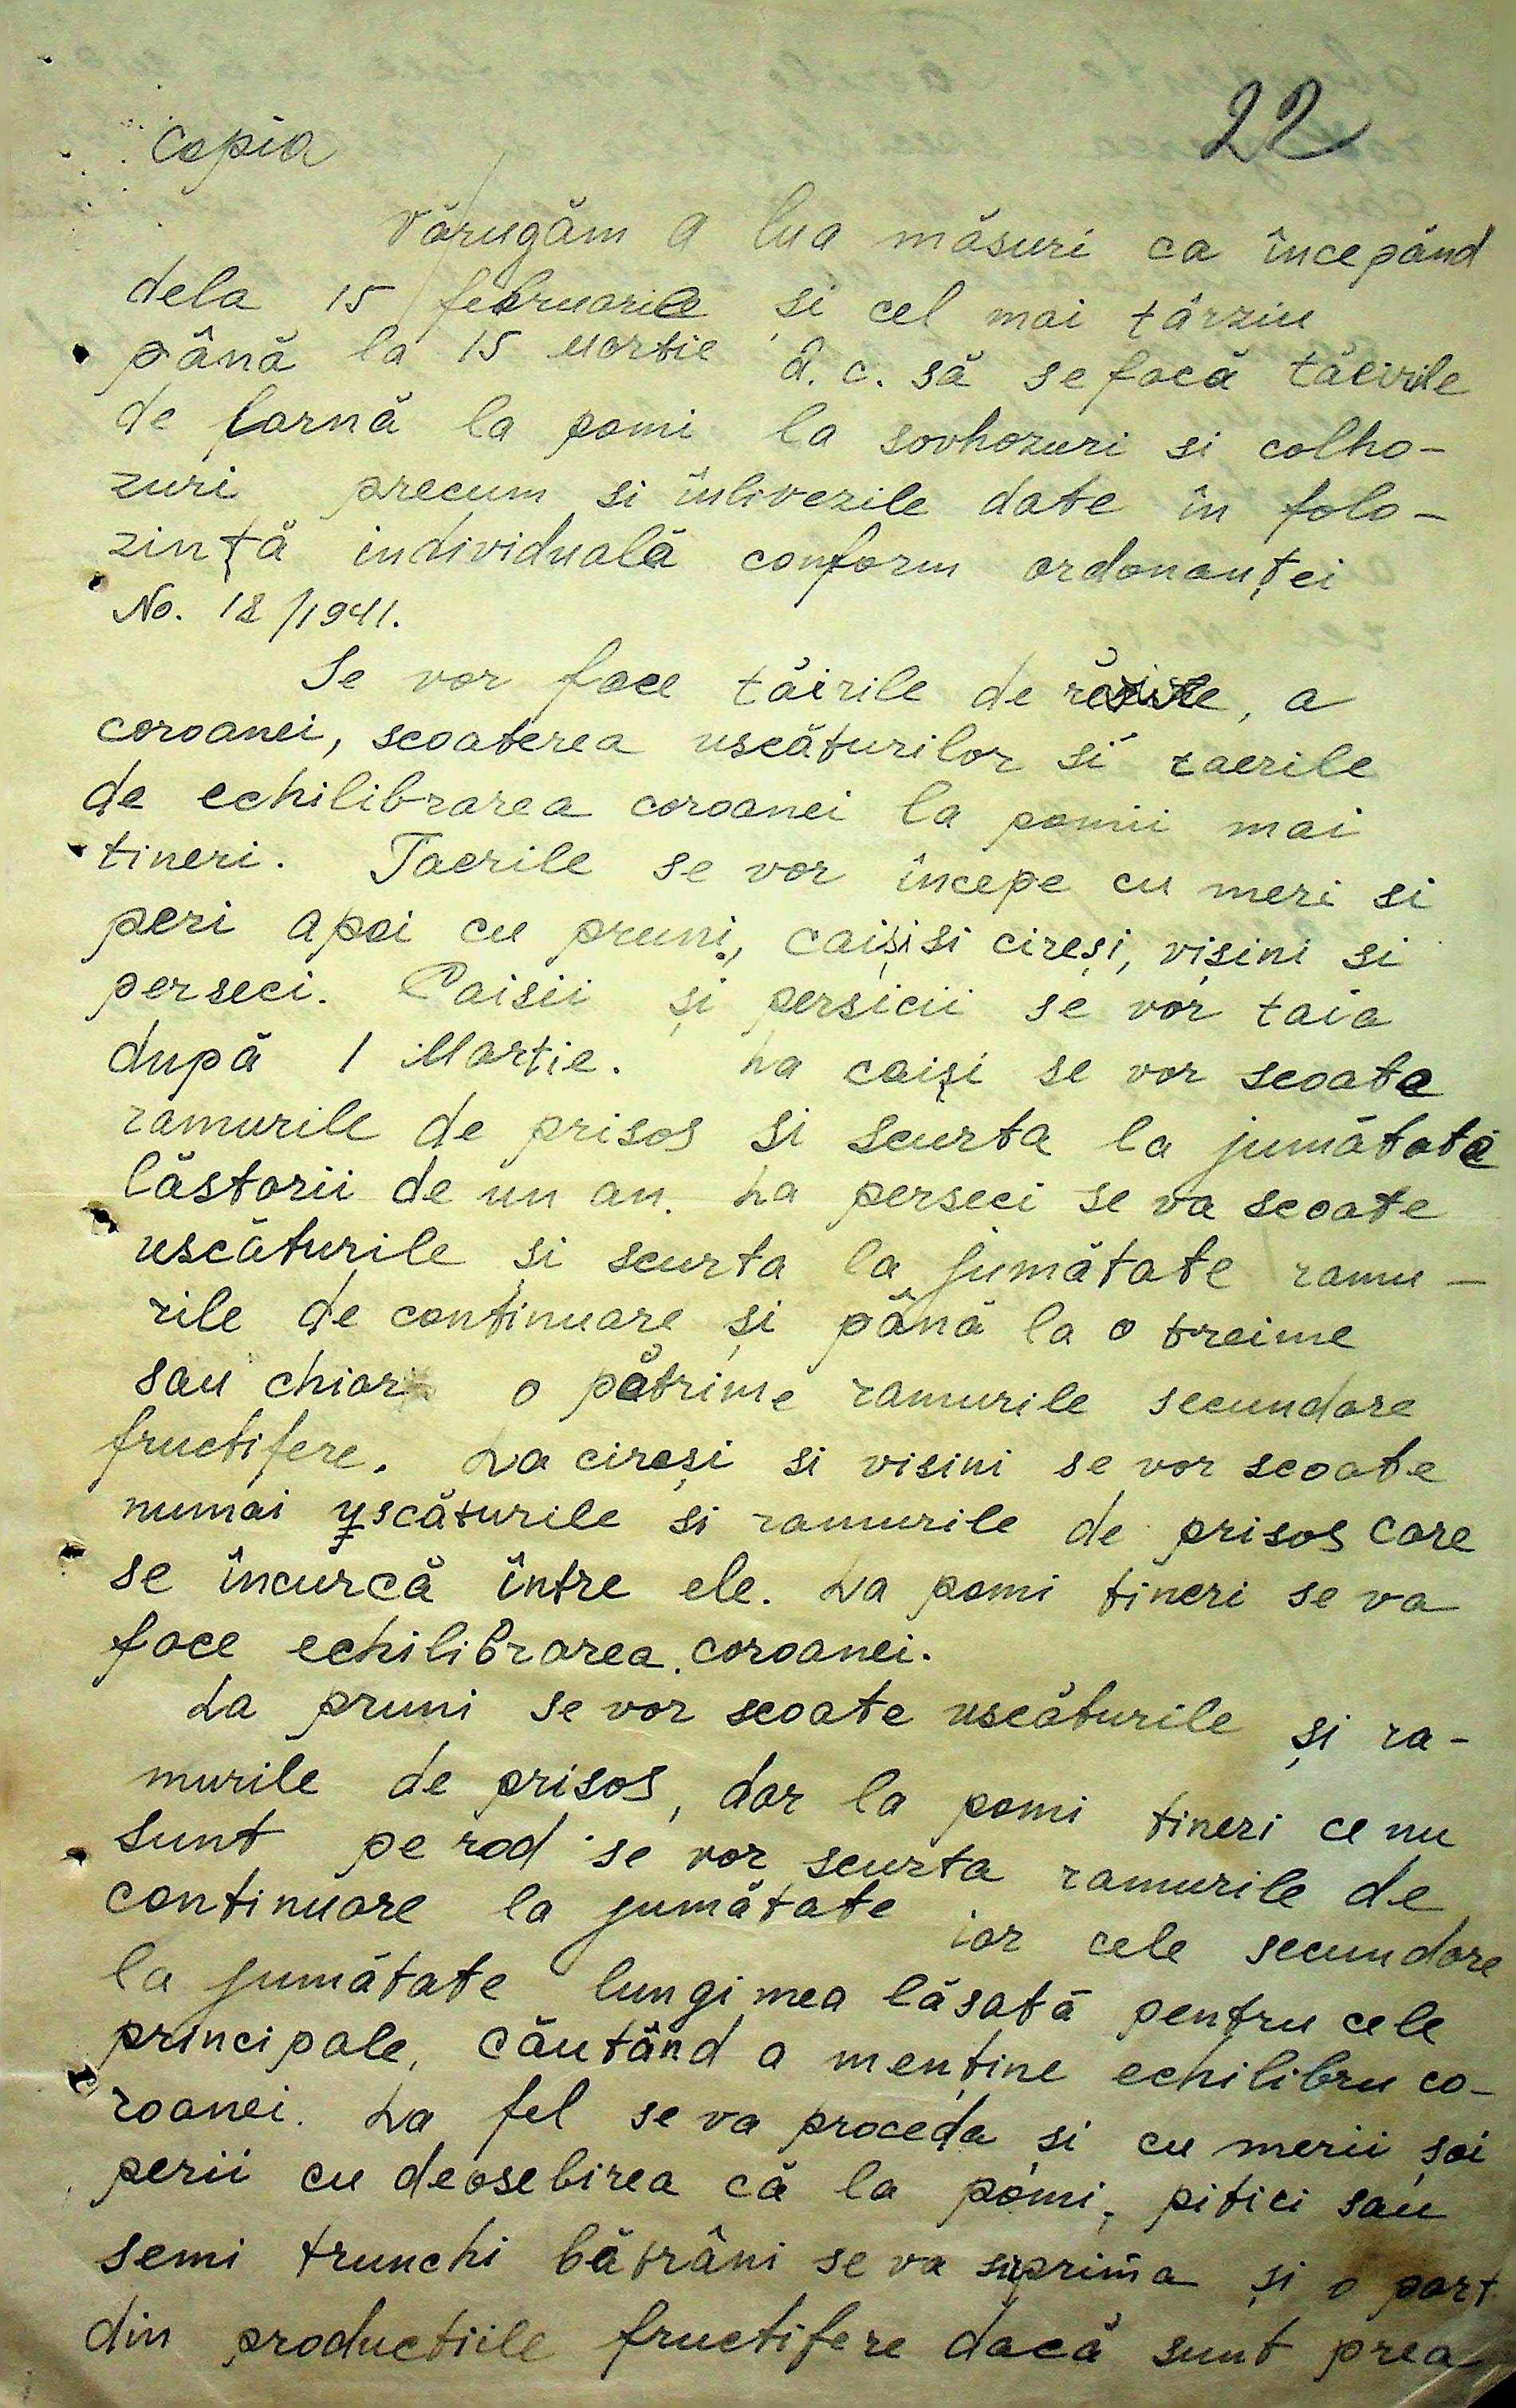 22
Copia
Vărugăm a lua măsuri ca începând
dela 15 februarie si cel mai târziu
până la 15 Martie a. c. să se facă tăcirile
de Iarnă la pomi la sovhozuri si colho-
zuri precum si înlivezile date în folo-
zință individuală conform ordonanței
No. 18/1941.
Se vor face tăirile de, a
coroanei, scoaterea uscăturilor si taerile
de echilibrarea coroanei la pomii mai
tineri. Taerile se vor începe cu meri si
peri apoi cu pruni, caiși si cireși, vișini si
perseci. Caisii și persicii se vor taia
după 1 Martie. La caiși se vor scoate
ramurile de prisos si scurta la jumătate
lăstarii de un an. La perseci se va scoate
uscăturile și scurta la jumătate ramu-
rile de continuare și până la o treime
sau chiar o pătrime ramurile secundare
fructifere. La cireși si visini se vor scoate
numai uscăturile si ramurile de prisos care
se încurcă între ele. La pomi tineri se va
face echilibrarea coroanei.
La pruni se vor scoate uscăturile și ra-
murile de prisos, dar la pomi tineri ce nu
sunt pe rod se vor scurta ramurile de
continuare la jumătate iar cele secundare
la jumătate lungimea lăsată pentru cele
principale, căutând a menține echilibru co-
roanei. La fel se va proceda si cu merii șai
perii cu deosebirea că la pomi, pitici sau
semi trunchi bătrâni se va suprima și o part
din productiile fructifere dacă sunt prea